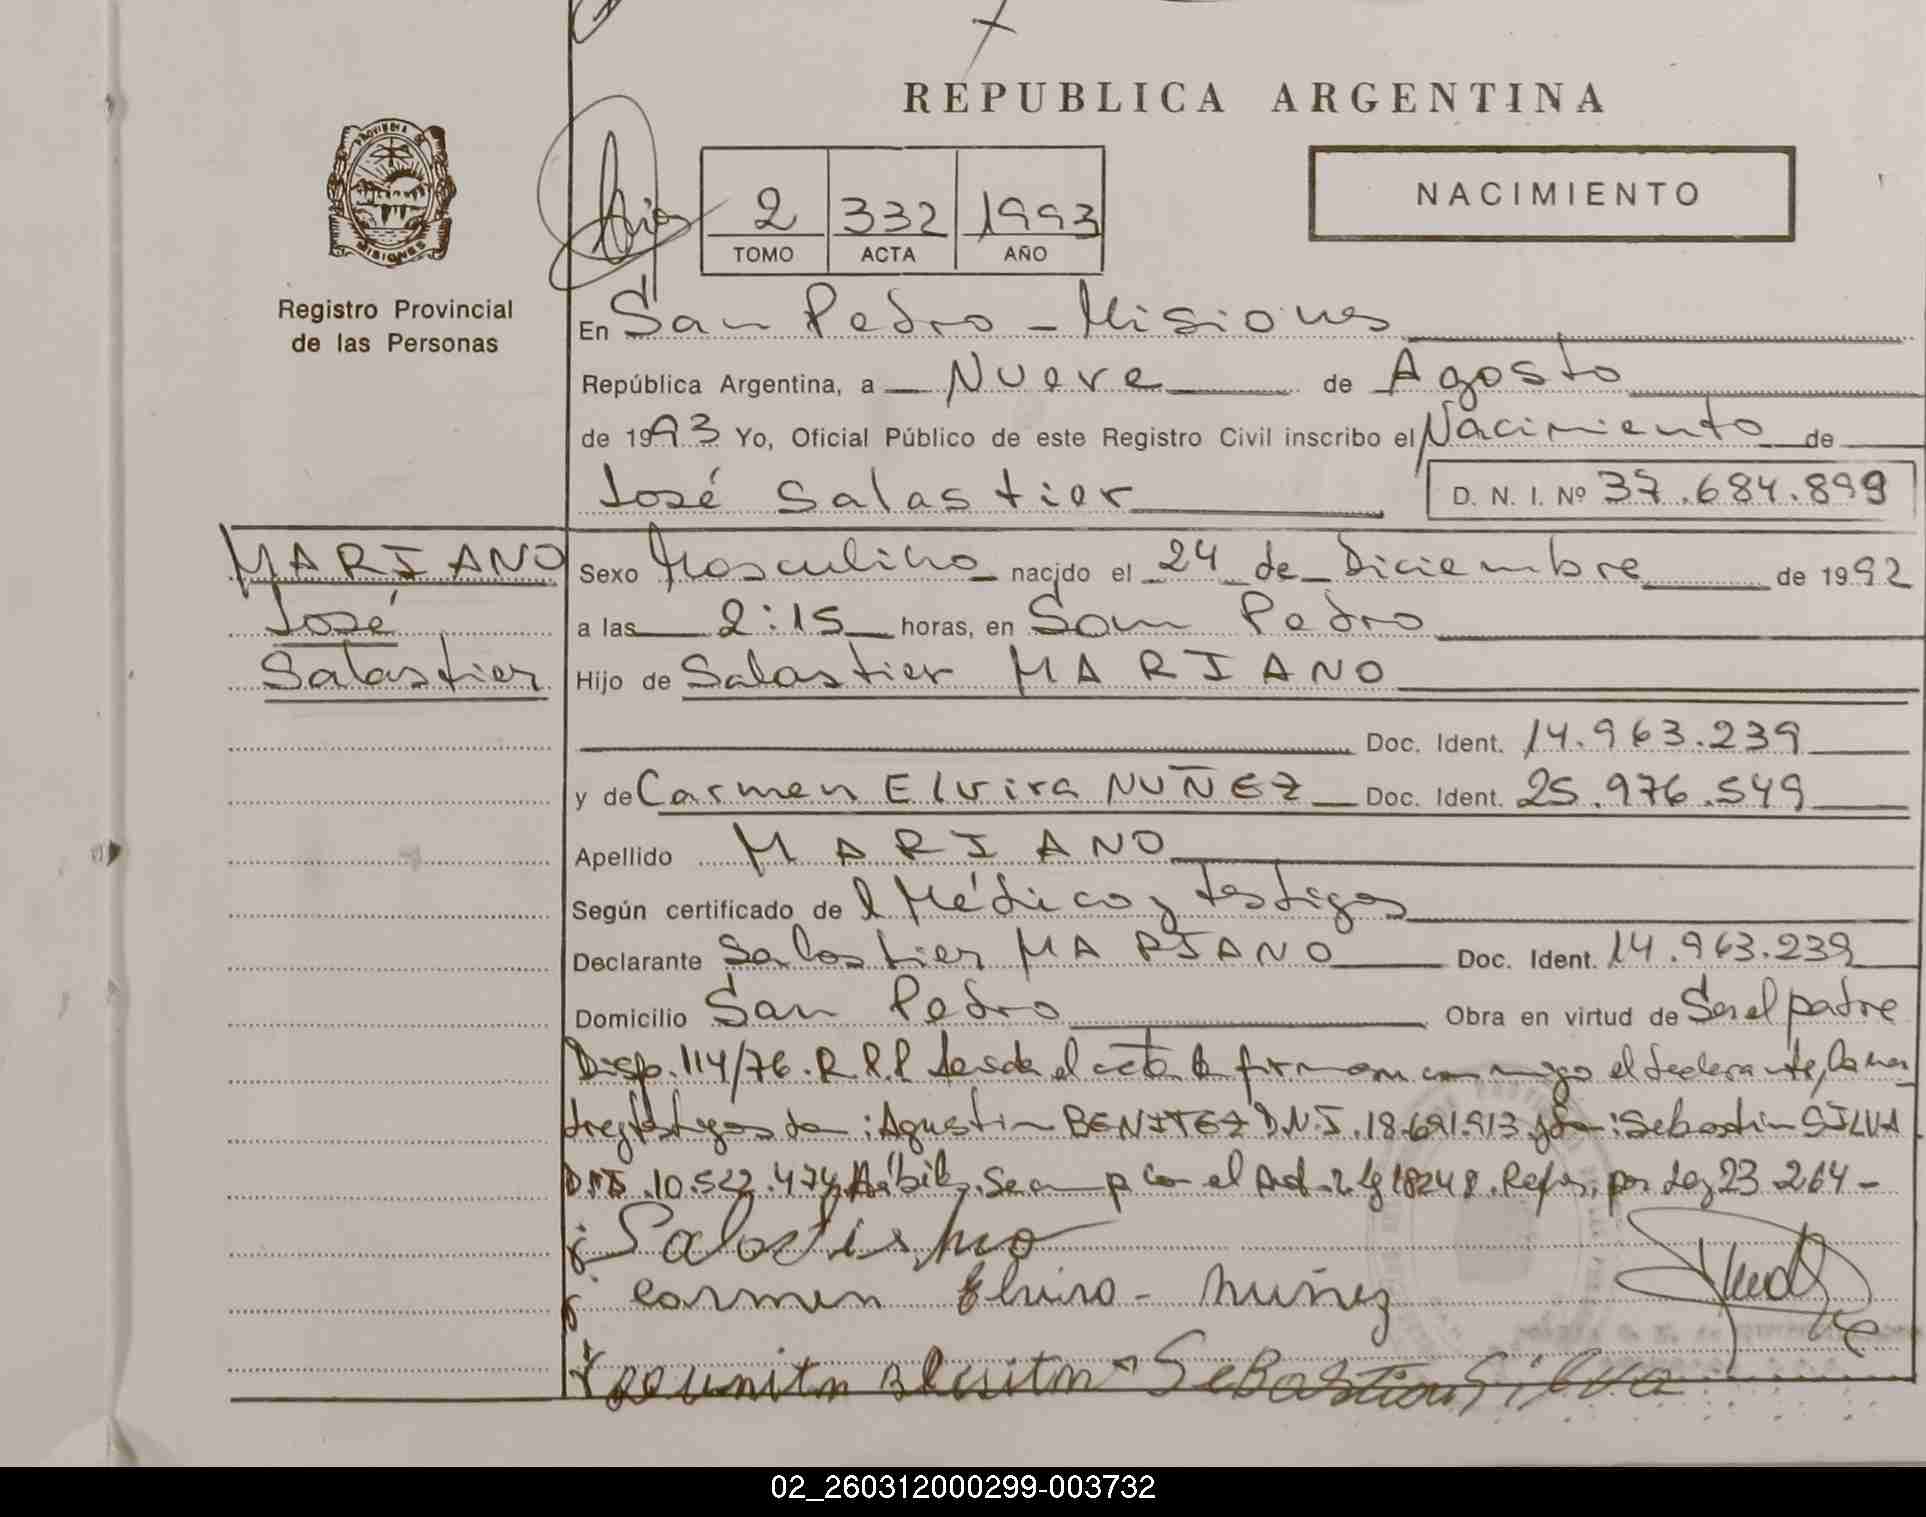 REPUBLICA ARGENTINA
PROVINCIA DE
MISIONES
Registro Provincial
de las Personas
2 332 1993
TOMO ACTA AÑO
NACIMIENTO
En San Pedro - Misiones
República Argentina, a Nueve de Agosto
de 1993 Yo, Oficial Público de este Registro Civil inscribo el Nacimiento de
José Salastier D. N. I. Nº 37.684.899
MARIANO
José
Salastier
Sexo Masculino nacido el 24 de Diciembre de 1992
a las 2:15 horas, en San Pedro
Hijo de Salastier MARIANO
Doc. Ident. 14.963.239
y de Carmen Elvira NUÑEZ Doc. Ident. 25.976.549
Apellido MARIANO
Según certificado de l Médico y testigos
Declarante Salastier MARIANO Doc. Ident. 14.963.239
Domicilio San Pedro Obra en virtud de Ser el padre
Disp. 114/76. R.P.P. Leida el acta la firman conmigo el declarante, la ma
dre y testigos Don: Agustin BENITEZ D.N.I. 18.691.913 y Don: Sebastin SILVA
DNI. 10.522.474, Hábiles. Se cump con el Art. 2 Ley 18248. Refor. por Ley 23 264 -
Carmen Elvira - Nuñez
Sebastian Silva
02_260312000299-003732